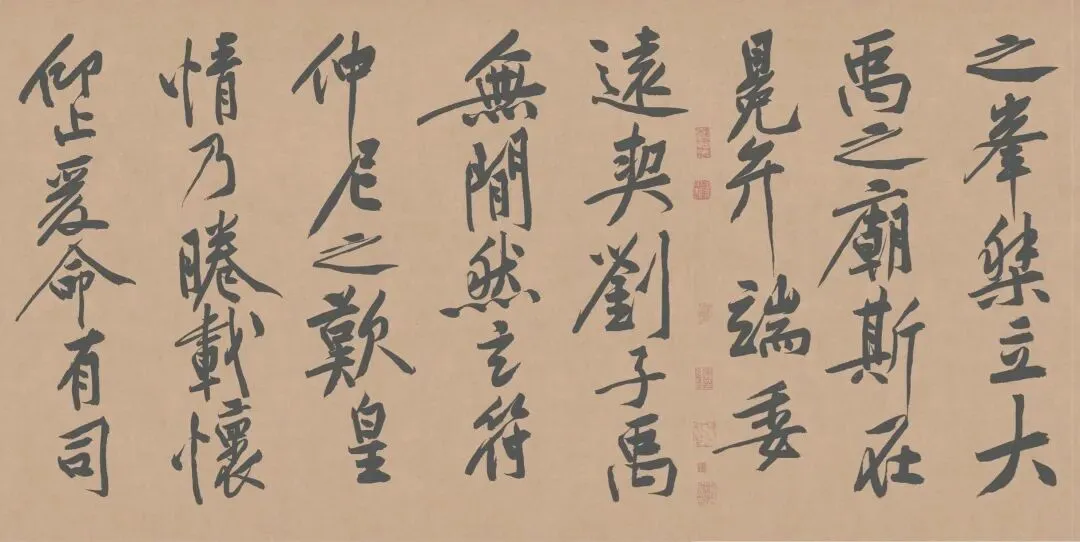 之峯桀立大
禹之廟斯在
冕弁端委
遠契劉子禹
無閒然玄符
仲尼之歎皇
情乃睠載懷
仰止爰命有司